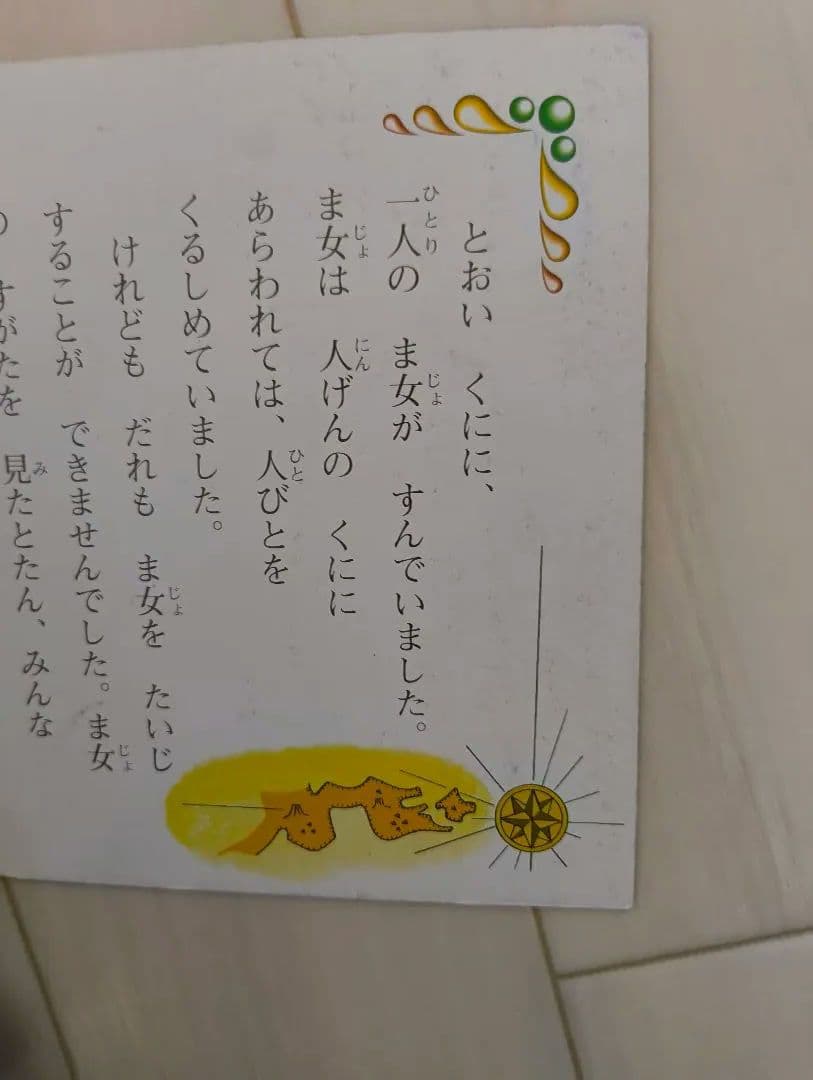 とおい　くにに、
一人の　ま女が　すんでいました。
ま女は　人げんの　くにに
あらわれては、人びとを
くるしめていました。
けれども　だれも　ま女を　たいじ
することが　できませんでした。ま女
すがたを　見たとたん、みんな